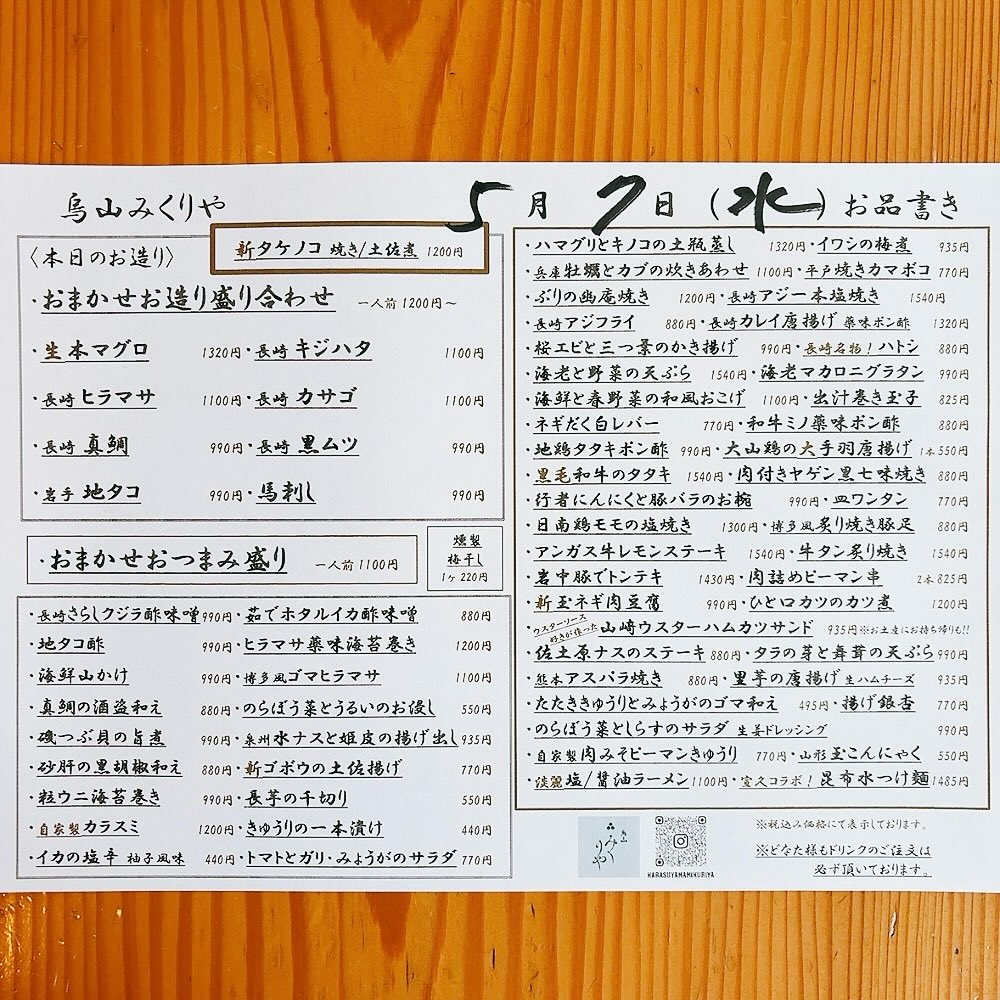 烏山みくりや 5月7日(水)お品書き
〈本日のお造り〉
新タケノコ 焼き/土佐煮 1200円
・おまかせお造り盛り合わせ 一人前1200円～
・生本マグロ 1320円・長崎キジハタ 1100円
・長崎ヒラマサ 1100円・長崎カサゴ 1100円
・長崎真鯛 990円・長崎黒ムツ 990円
・岩手地タコ 990円・馬刺し 990円
・おまかせおつまみ盛り 一人前1100円
燻製
梅干し
1ヶ220円
・長崎さらしクジラ酢味噌 990円・茹でホタルイカ酢味噌 880円
・地タコ酢 990円・ヒラマサ薬味海苔巻き 1200円
・海鮮山かけ 990円・博多風ゴマヒラマサ 1100円
・真鯛の酒盗和え 880円・のらぼう菜とうるいのお浸し 550円
・磯つぶ貝の旨煮 990円・泉州水ナスと姫皮の揚げ出し 935円
・砂肝の黒胡椒和え 880円・新ゴボウの土佐揚げ 770円
・粒ウニ海苔巻き 990円・長芋の千切り 550円
・自家製カラスミ 1200円・きゅうりの一本漬け 440円
・イカの塩辛 柚子風味 440円・トマトとガリ・みょうがのサラダ 770円
・ハマグリとキノコの土瓶蒸し 1320円・イワシの梅煮 935円
・兵庫牡蠣とカブの炊きあわせ 1100円・平戸焼きカマボコ 770円
・ぶりの幽庵焼き 1200円・長崎アジ一本塩焼き 1540円
・長崎アジフライ 880円・長崎カレイ唐揚げ 薬味ポン酢 1320円
・桜エビと三つ葉のかき揚げ 990円・長崎名物！ハトシ 880円
・海老と野菜の天ぷら 1540円・海老マカロニグラタン 990円
・海鮮と春野菜の和風おこげ 1100円・出汁巻き玉子 825円
・ネギだく白レバー 770円・和牛ミノ薬味ポン酢 880円
・地鶏タタキポン酢 990円・大山鶏の大手羽唐揚げ 1本550円
・黒毛和牛のタタキ 1540円・肉付きヤゲン黒七味焼き 880円
・行者にんにくと豚バラのお椀 990円・皿ワンタン 770円
・日南鶏モモの塩焼き 1300円・博多風炙り焼き豚足 880円
・アンガス牛レモンステーキ 1540円・牛タン炙り焼き 1540円
・岩中豚でトンテキ 1430円・肉詰めピーマン串 2本825円
・新玉ネギ肉豆腐 990円・ひと口カツのカツ煮 1200円
・ウスターソース好きが作った 山﨑ウスターハムカツサンド 935円※お土産にお持ち帰りも!!
・佐土原ナスのステーキ 880円・タラの芽と舞茸の天ぷら 990円
・熊本アスパラ焼き 880円・里芋の唐揚げ 生ハムチーズ 935円
・たたききゅうりとみょうがのゴマ和え 495円・揚げ銀杏 770円
・のらぼう菜としらすのサラダ 生姜ドレッシング 990円
・自家製肉みそピーマンきゅうり 770円・山形玉こんにゃく 550円
・淡麗塩/醤油ラーメン 1100円・宣久コラボ！昆布水つけ麺 1485円
烏山
みくりや
KARASUYAMAMIKURIYA
※税込み価格にて表示しております。
※どなた様もドリンクのご注文は
必ず頂いております。